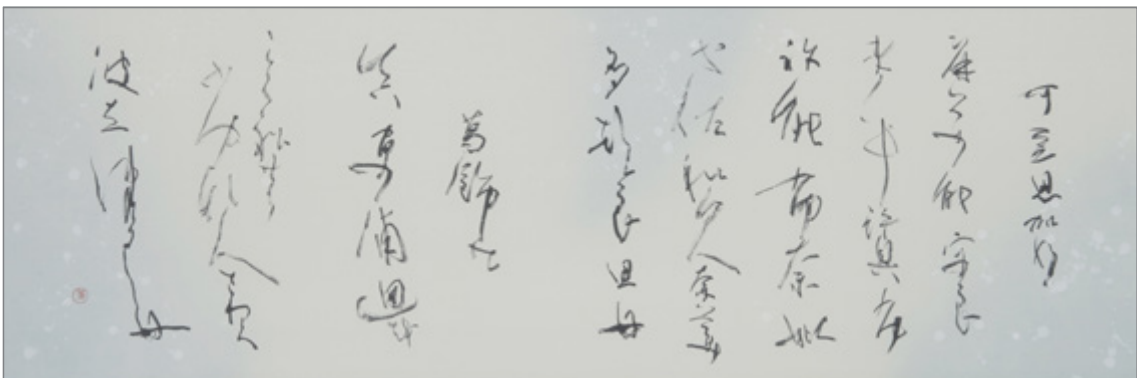 可豆思加乃
麻万能宇良
未乎許具布
祢能布奈妣
等佐和久奈美
多都良思母
葛飾の
真間の浦廻を
こぐ船の
波立